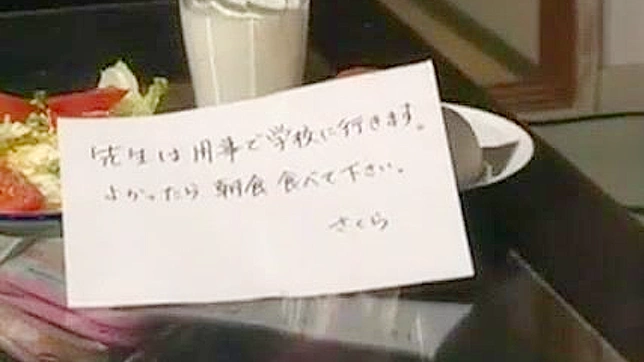 先生は用事で学校に行きます。
よかったら朝食食べて下さい。
さくら